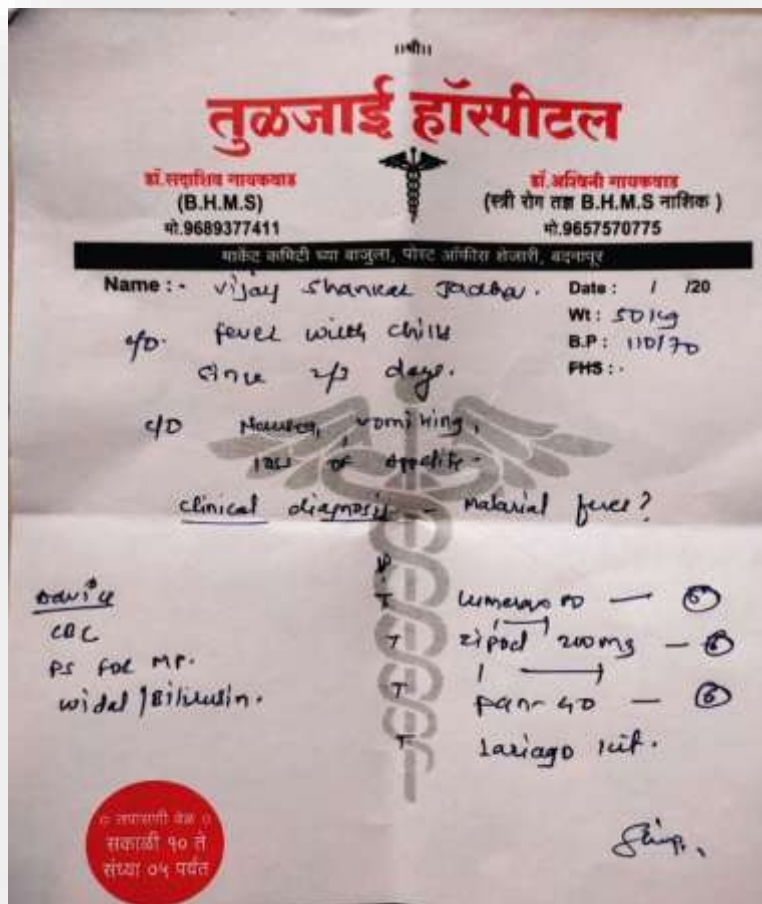 ॥श्री॥
तुळजाई हॉस्पीटल
डॉ.सदाशिव गायकवाड
(B.H.M.S)
मो.9689377411
डॉ.अश्विनी गायकवाड
(स्त्री रोग तज्ञ B.H.M.S नाशिक )
मो.9657570775
मार्केट कमिटी च्या बाजुला, पोस्ट ऑफीस शेजारी, बदनापूर
Name : - Vijay Shankar Jadhav.
Date : / /20
Wt : 50 kg
B.P : 110/70
FHS : -
c/o. fever with chills
since 2/3 days.
c/o Nausea, vomiting,
loss of appetite -
clinical diagnosis - Malarial fever?
Advice
CBC
PS for MP.
widal / Bilirubin.
T — 6
T 200mg — 6
T pan-40 — 6
T Lariago kit.
○ तपासणी वेळ ○
सकाळी १० ते
संध्या ०५ पर्यंत